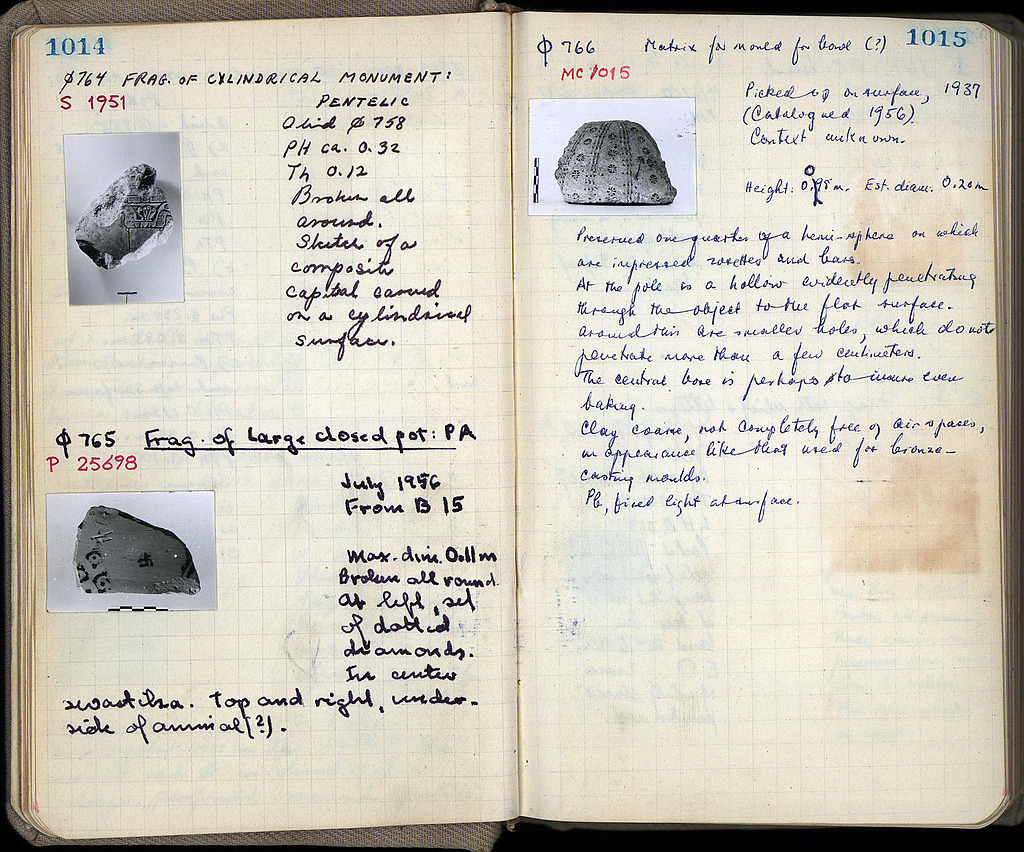 1014
φ764 FRAG. OF CYLINDRICAL MONUMENT:
S 1951
PENTELIC
A lid φ 758
PH ca. 0.32
Th 0.12
Broken all
around.
Sketch of a
composite
capital carved
on a cylindrical
surface.
φ 765 Frag. of large closed pot: PA
P 25698
July 1956
From B 15
Max. dim. 0.11 m
Broken all round.
At left, set
of dotted
diamonds.
In center
swastika. Top and right, under-
side of animal(?).
1015
φ 766 Matrix for mould for bowl (?)
MC 1015
Picked up on surface, 1937
(Catalogued 1956)
Context unknown.
Height: m. Est. diam. 0.20 m
Preserved one quarter of a hemi-sphere on which
are impressed rosettes and bars.
At the pole is a hollow evidently penetrating
through the object to the flat surface.
Around this are smaller holes, which do not
penetrate more than a few centimeters.
The central bore is perhaps to insure even
baking.
Clay coarse, not completely free of air spaces,
in appearance like that used for bronze-
casting moulds.
Pb, fired light at surface.